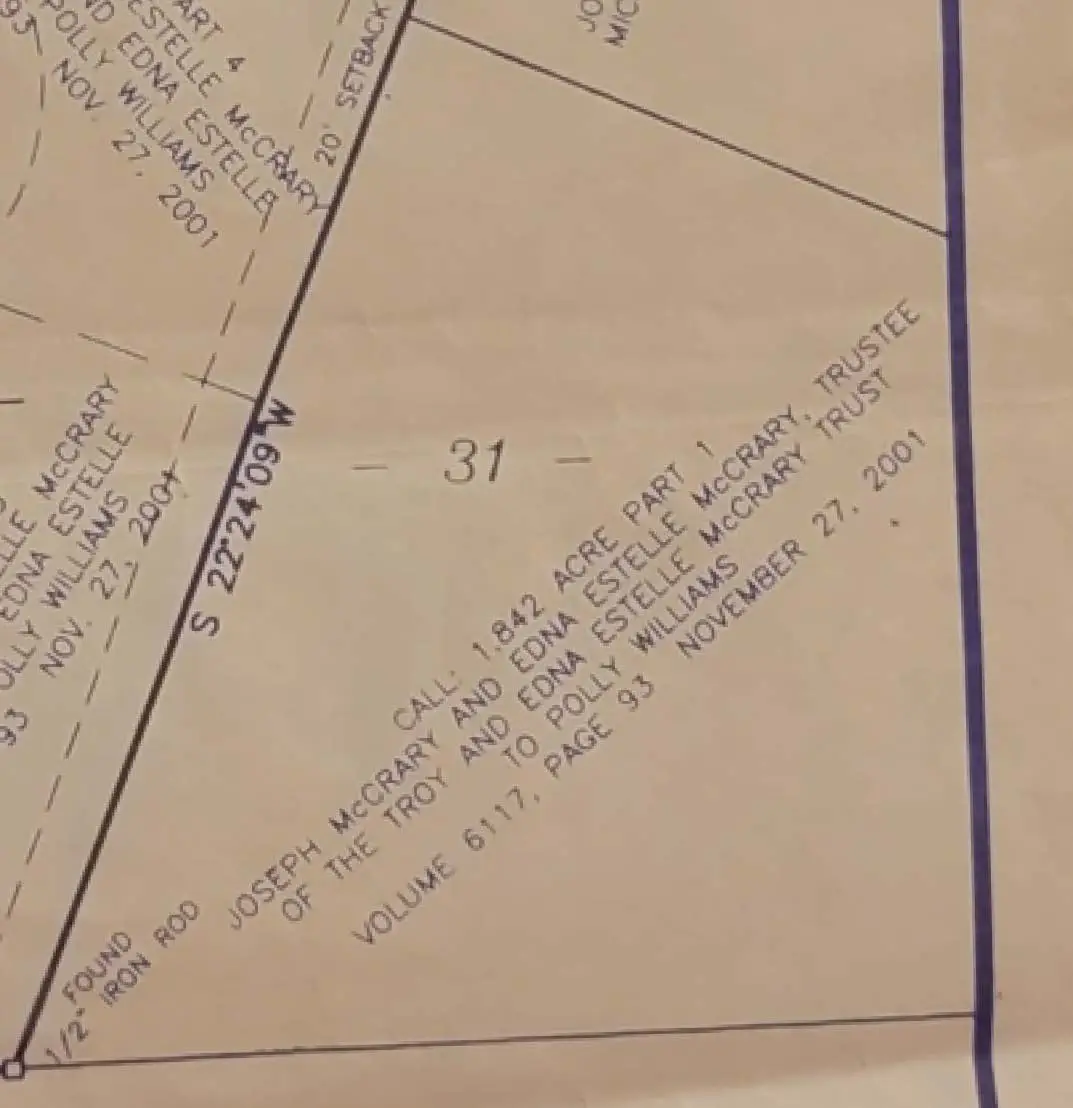 ART 4
ESTELLE McCRARY
ND EDNA ESTELLE
POLLY WILLIAMS
93
NOV. 27, 2001
20' SETBACK
JO
MIC
S 22°24'09" W
- 31 -
LLE McCRARY
EDNA ESTELLE
OLLY WILLIAMS
93 NOV. 27, 2001
CALL: 1.842 ACRE PART 1
JOSEPH McCRARY AND EDNA ESTELLE McCRARY, TRUSTEE
OF THE TROY AND EDNA ESTELLE McCRARY TRUST
TO POLLY WILLIAMS
VOLUME 6117, PAGE 93 NOVEMBER 27, 2001
1/2" FOUND
IRON ROD